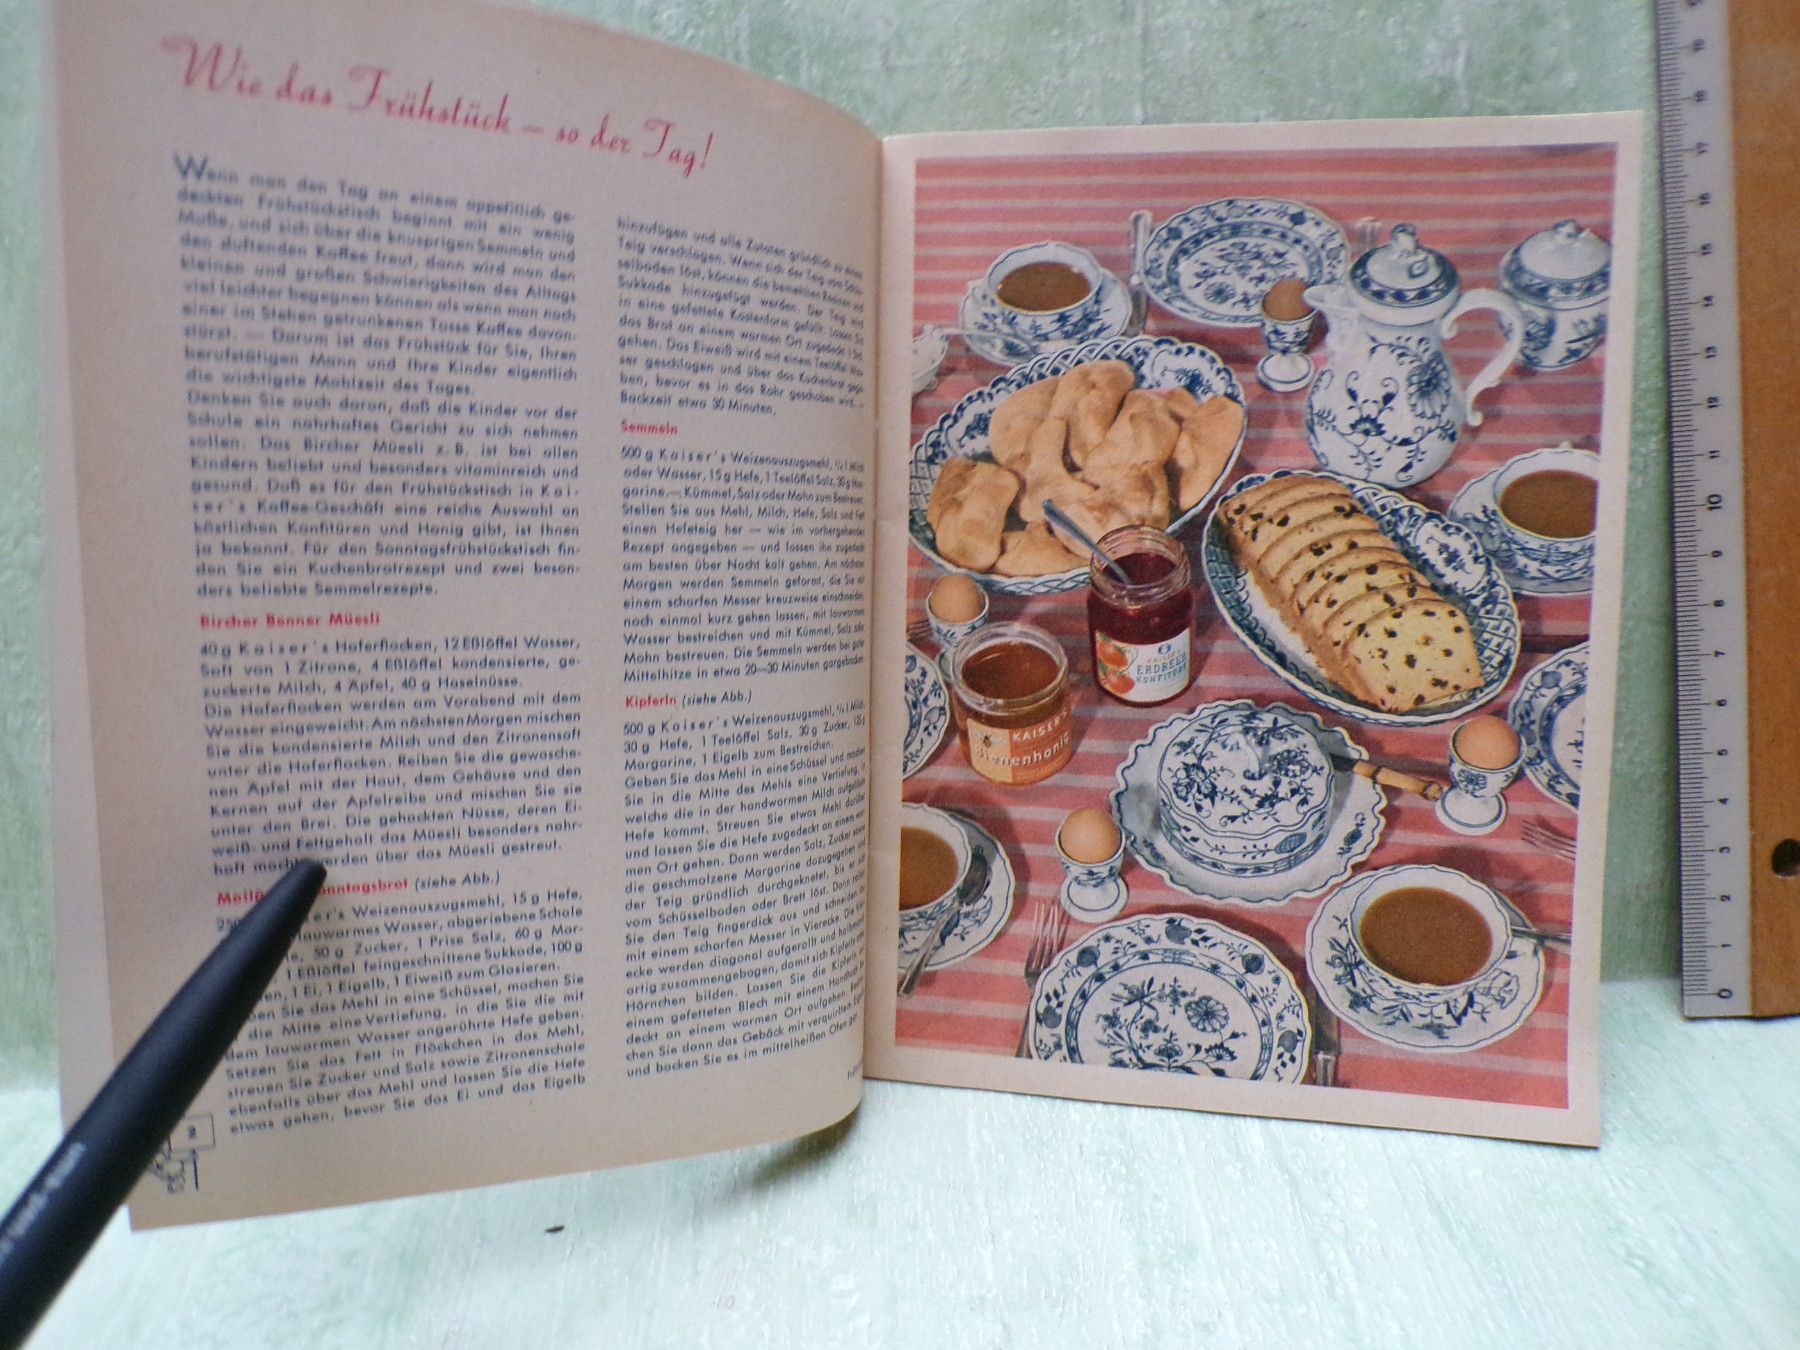 Wie das Frühstück – so der Tag!
Wenn man den Tag an einem appetitlich ge-
deckten Frühstückstisch beginnt mit ein wenig
Muße, und sich über die knusprigen Semmeln und
den duftenden Kaffee freut, dann wird man den
kleinen und großen Schwierigkeiten des Alltags
viel leichter begegnen können als wenn man nach
einer im Stehen getrunkenen Tasse Kaffee davon-
stürzt. — Darum ist das Frühstück für Sie, Ihren
berufstätigen Mann und Ihre Kinder eigentlich
die wichtigste Mahlzeit des Tages.
Denken Sie auch daran, daß die Kinder vor der
Schule ein nahrhaftes Gericht zu sich nehmen
sollen. Das Bircher Müesli z. B. ist bei allen
Kindern beliebt und besonders vitaminreich und
gesund. Daß es für den Frühstückstisch in Kai-
ser's Kaffee-Geschäft eine reiche Auswahl an
köstlichen Konfitüren und Honig gibt, ist Ihnen
ja bekannt. Für den Sonntagsfrühstückstisch fin-
den Sie ein Kuchenbrotrezept und zwei beson-
ders beliebte Semmelrezepte.
Bircher Benner Müesli
40 g Kaiser's Haferflocken, 12 Eßlöffel Wasser,
Saft von 1 Zitrone, 4 Eßlöffel kondensierte, ge-
zuckerte Milch, 4 Äpfel, 40 g Haselnüsse.
Die Haferflocken werden am Vorabend mit dem
Wasser eingeweicht. Am nächsten Morgen mischen
Sie die kondensierte Milch und den Zitronensaft
unter die Haferflocken. Reiben Sie die gewasche-
nen Äpfel mit der Haut, dem Gehäuse und den
Kernen auf der Apfelreibe und mischen Sie sie
unter den Brei. Die gehackten Nüsse, deren Ei-
weiß- und Fettgehalt das Müesli besonders nahr-
haft macht werden über das Müesli gestreut.
Sonntagsbrot (siehe Abb.)
Weizenauszugsmehl, 15 g Hefe,
lauwarmes Wasser, abgeriebene Schale
50 g Zucker, 1 Prise Salz, 60 g Mar-
1 Eßlöffel feingeschnittene Sukkade, 100 g
1 Ei, 1 Eigelb, 1 Eiweiß zum Glasieren.
Sie das Mehl in eine Schüssel, machen Sie
die Mitte eine Vertiefung, in die Sie die mit
dem lauwarmen Wasser angerührte Hefe geben.
Setzen Sie das Fett in Flöckchen in das Mehl,
streuen Sie Zucker und Salz sowie Zitronenschale
ebenfalls über das Mehl und lassen Sie die Hefe
etwas gehen, bevor Sie das Ei und das Eigelb
2
hinzufügen und alle Zutaten gründlich zu einem
Teig verschlagen. Wenn sich der Teig vom Schüs-
selboden löst, können die bemehlten Rosinen und
Sukkade hinzugefügt werden. Der Teig wird
in eine gefettete Kastenform gefüllt. Lassen Sie
das Brot an einem warmen Ort zugedeckt
gehen. Das Eiweiß wird mit einem Teelöffel Was-
ser geschlagen und über das Kuchenbrot gege-
ben, bevor es in das Rohr geschoben wird. —
Backzeit etwa 30 Minuten.
Semmeln
500 g Kaiser's Weizenauszugsmehl, ¼ l Milch
oder Wasser, 15 g Hefe, 1 Teelöffel Salz, 30 g Mar-
garine. — Kümmel, Salz oder Mohn zum Bestreuen.
Stellen Sie aus Mehl, Milch, Hefe, Salz und Fett
einen Hefeteig her — wie im vorhergehenden
Rezept angegeben — und lassen ihn zugedeckt
am besten über Nacht kalt gehen. Am nächsten
Morgen werden Semmeln geformt, die Sie mit
einem scharfen Messer kreuzweise einschneiden,
noch einmal kurz gehen lassen, mit lauwarmem
Wasser bestreichen und mit Kümmel, Salz oder
Mohn bestreuen. Die Semmeln werden bei guter
Mittelhitze in etwa 20—30 Minuten gargebacken.
Kipferln (siehe Abb.)
500 g Kaiser's Weizenauszugsmehl, ¼ l Milch,
30 g Hefe, 1 Teelöffel Salz, 30 g Zucker, 125 g
Margarine, 1 Eigelb zum Bestreichen.
Geben Sie das Mehl in eine Schüssel und machen
Sie in die Mitte des Mehls eine Vertiefung, in
welche die in der handwarmen Milch aufgelöste
Hefe kommt. Streuen Sie etwas Mehl darüber
und lassen Sie die Hefe zugedeckt an einem war-
men Ort gehen. Dann werden Salz, Zucker sowie
die geschmolzene Margarine dazugegeben und
der Teig gründlich durchgeknetet, bis er sich
vom Schüsselboden oder Brett löst. Dann rollen
Sie den Teig fingerdick aus und schneiden ihn
mit einem scharfen Messer in Vierecke. Die Vier-
ecke werden diagonal aufgerollt und halbmond-
artig zusammengebogen, damit sich Kipferln oder
Hörnchen bilden. Lassen Sie die Kipferln auf
einem gefetteten Blech mit einem Handtuch be-
deckt an einem warmen Ort aufgehen.
chen Sie dann das Gebäck mit verquirltem Eigelb
und backen Sie es im mittelheißen Ofen gar.
KAISER'S
ERDBEER
KONFITÜRE
KAISER'S
Bienenhonig
17
16
15
14
13
12
11
10
9
8
7
6
5
4
3
2
1
0